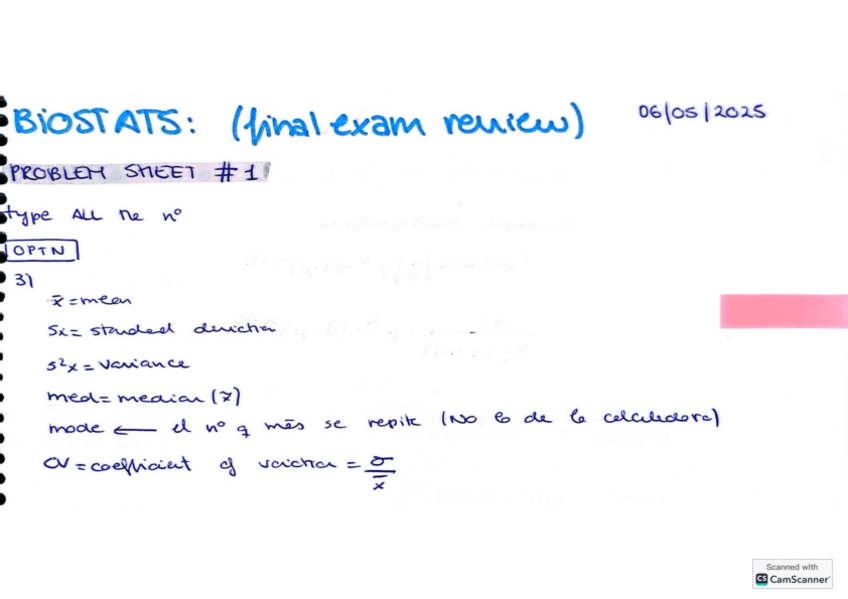 BIOSTATS: (final exam review)
06/05/2025
PROBLEM SHEET #1
type ALL the nº
OPTN
3)
x̄ = mean
Sx = standard deviation
s²x = variance
med = median (x̃)
mode ← el nº q más se repite (No lo da la calculadora)
CV = coefficient of variation = σ/x̄
Scanned with
CS CamScanner